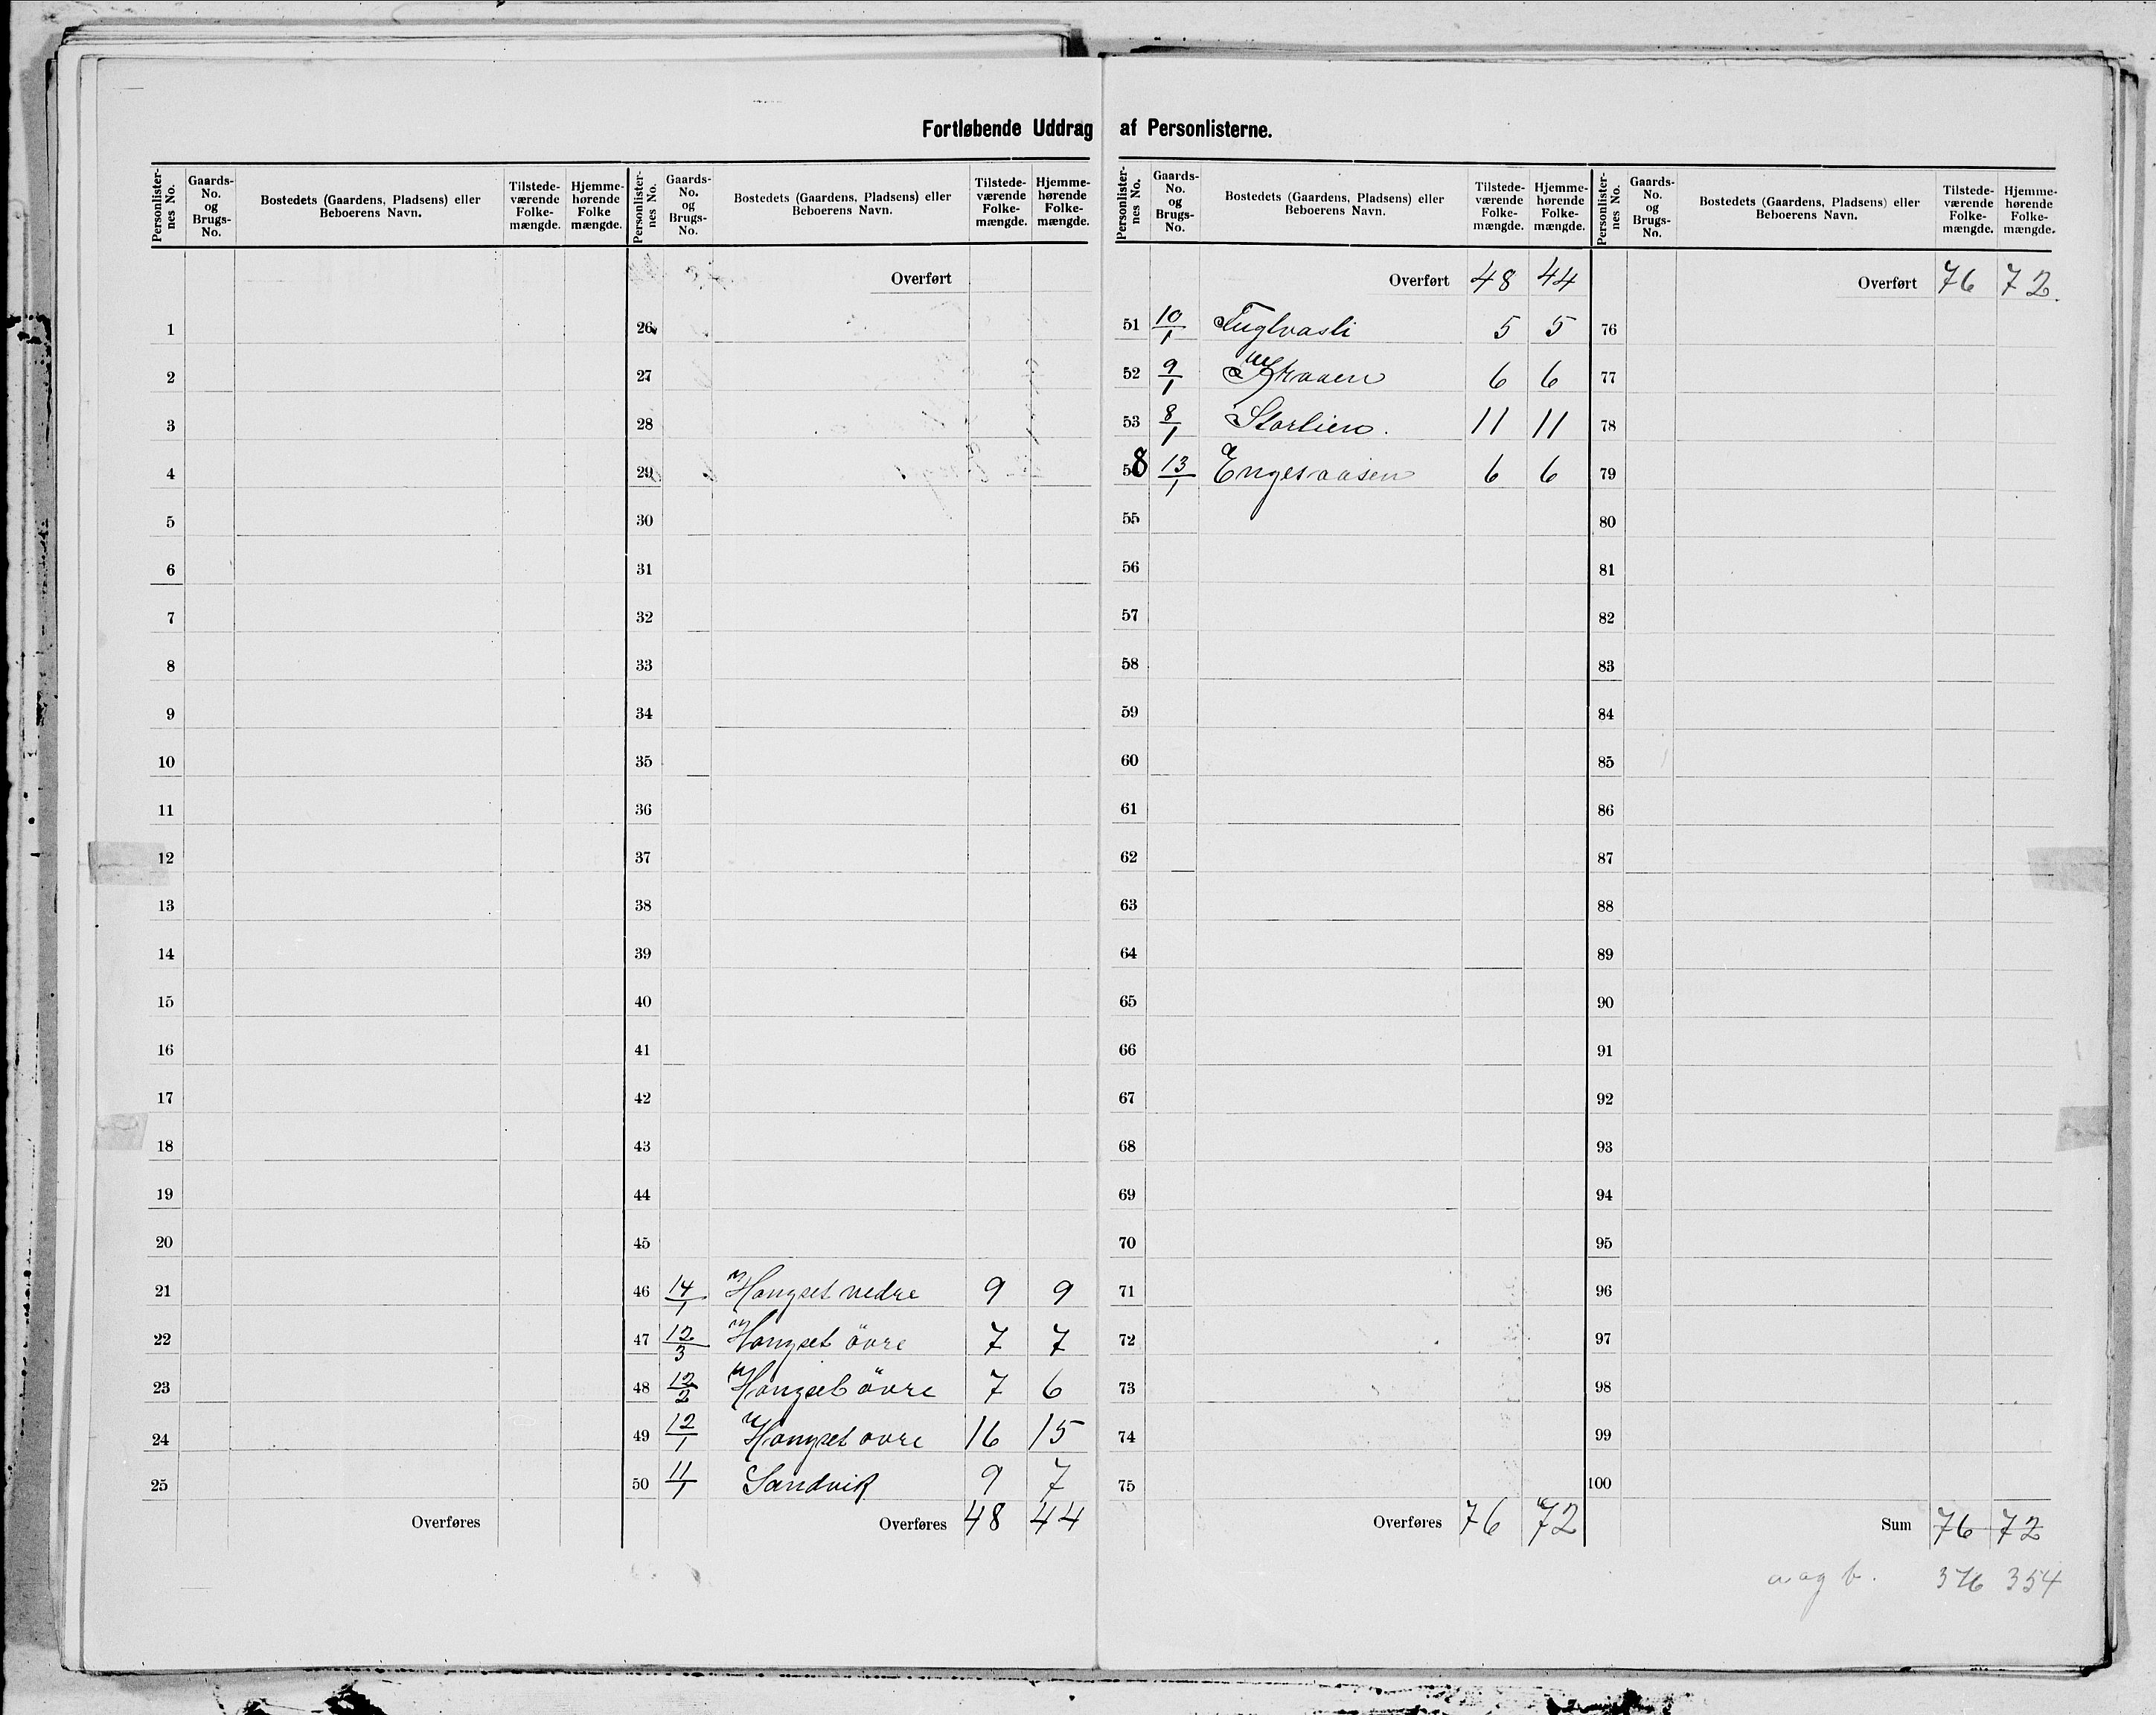 Fortløbende Uddrag af Personlisterne.
Personlister-nes No. Gaards-No. og Brugs-No. Bostedets (Gaardens, Pladsens) eller Beboerens Navn. Tilstede-værende Folke-mængde. Hjemme-hørende Folke mængde.
1
2
3
4
5
6
7
8
9
10
11
12
13
14
15
16
17
18
19
20
21
22
23
24
25
Overføres
Personlister-nes No. Gaards-No. og Brugs-No. Bostedets (Gaardens, Pladsens) eller Beboerens Navn. Tilstede-værende Folke-mængde. Hjemme-hørende Folke-mængde.
Overført
26
27
28
29
30
31
32
33
34
35
36
37
38
39
40
41
42
43
44
45
46 14/1 Hongset nedre 9 9
47 12/3 Hongset övre 7 7
48 12/2 Hongset övre 7 6
49 12/1 Hongset ovre 16 15
50 11/1 Sandvik 9 7
Overføres 48 44
Personlister-nes No. Gaards-No. og Brugs-No. Bostedets (Gaardens, Pladsens) eller Beboerens Navn. Tilstede-værende Folke-mængde. Hjemme-hørende Folke-mængde.
Overført 48 44
51 10/1 Fuglvasli 5 5
52 9/1 6 6
53 8/1 Storlien. 11 11
8 13/1 Engesaasen 6 6
55
56
57
58
59
60
61
62
63
64
65
66
67
68
69
70
71
72
73
74
75
Overføres 76 72
Personlister-nes No. Gaards-No. og Brugs-No. Bostedets (Gaardens, Pladsens) eller Beboerens Navn. Tilstede-værende Folke-mængde. Hjemme-hørende Folke-mængde.
Overført 76 72.
76
77
78
79
80
81
82
83
84
85
86
87
88
89
90
91
92
93
94
95
96
97
98
99
100
Sum 76 72
a. og b. 376 354